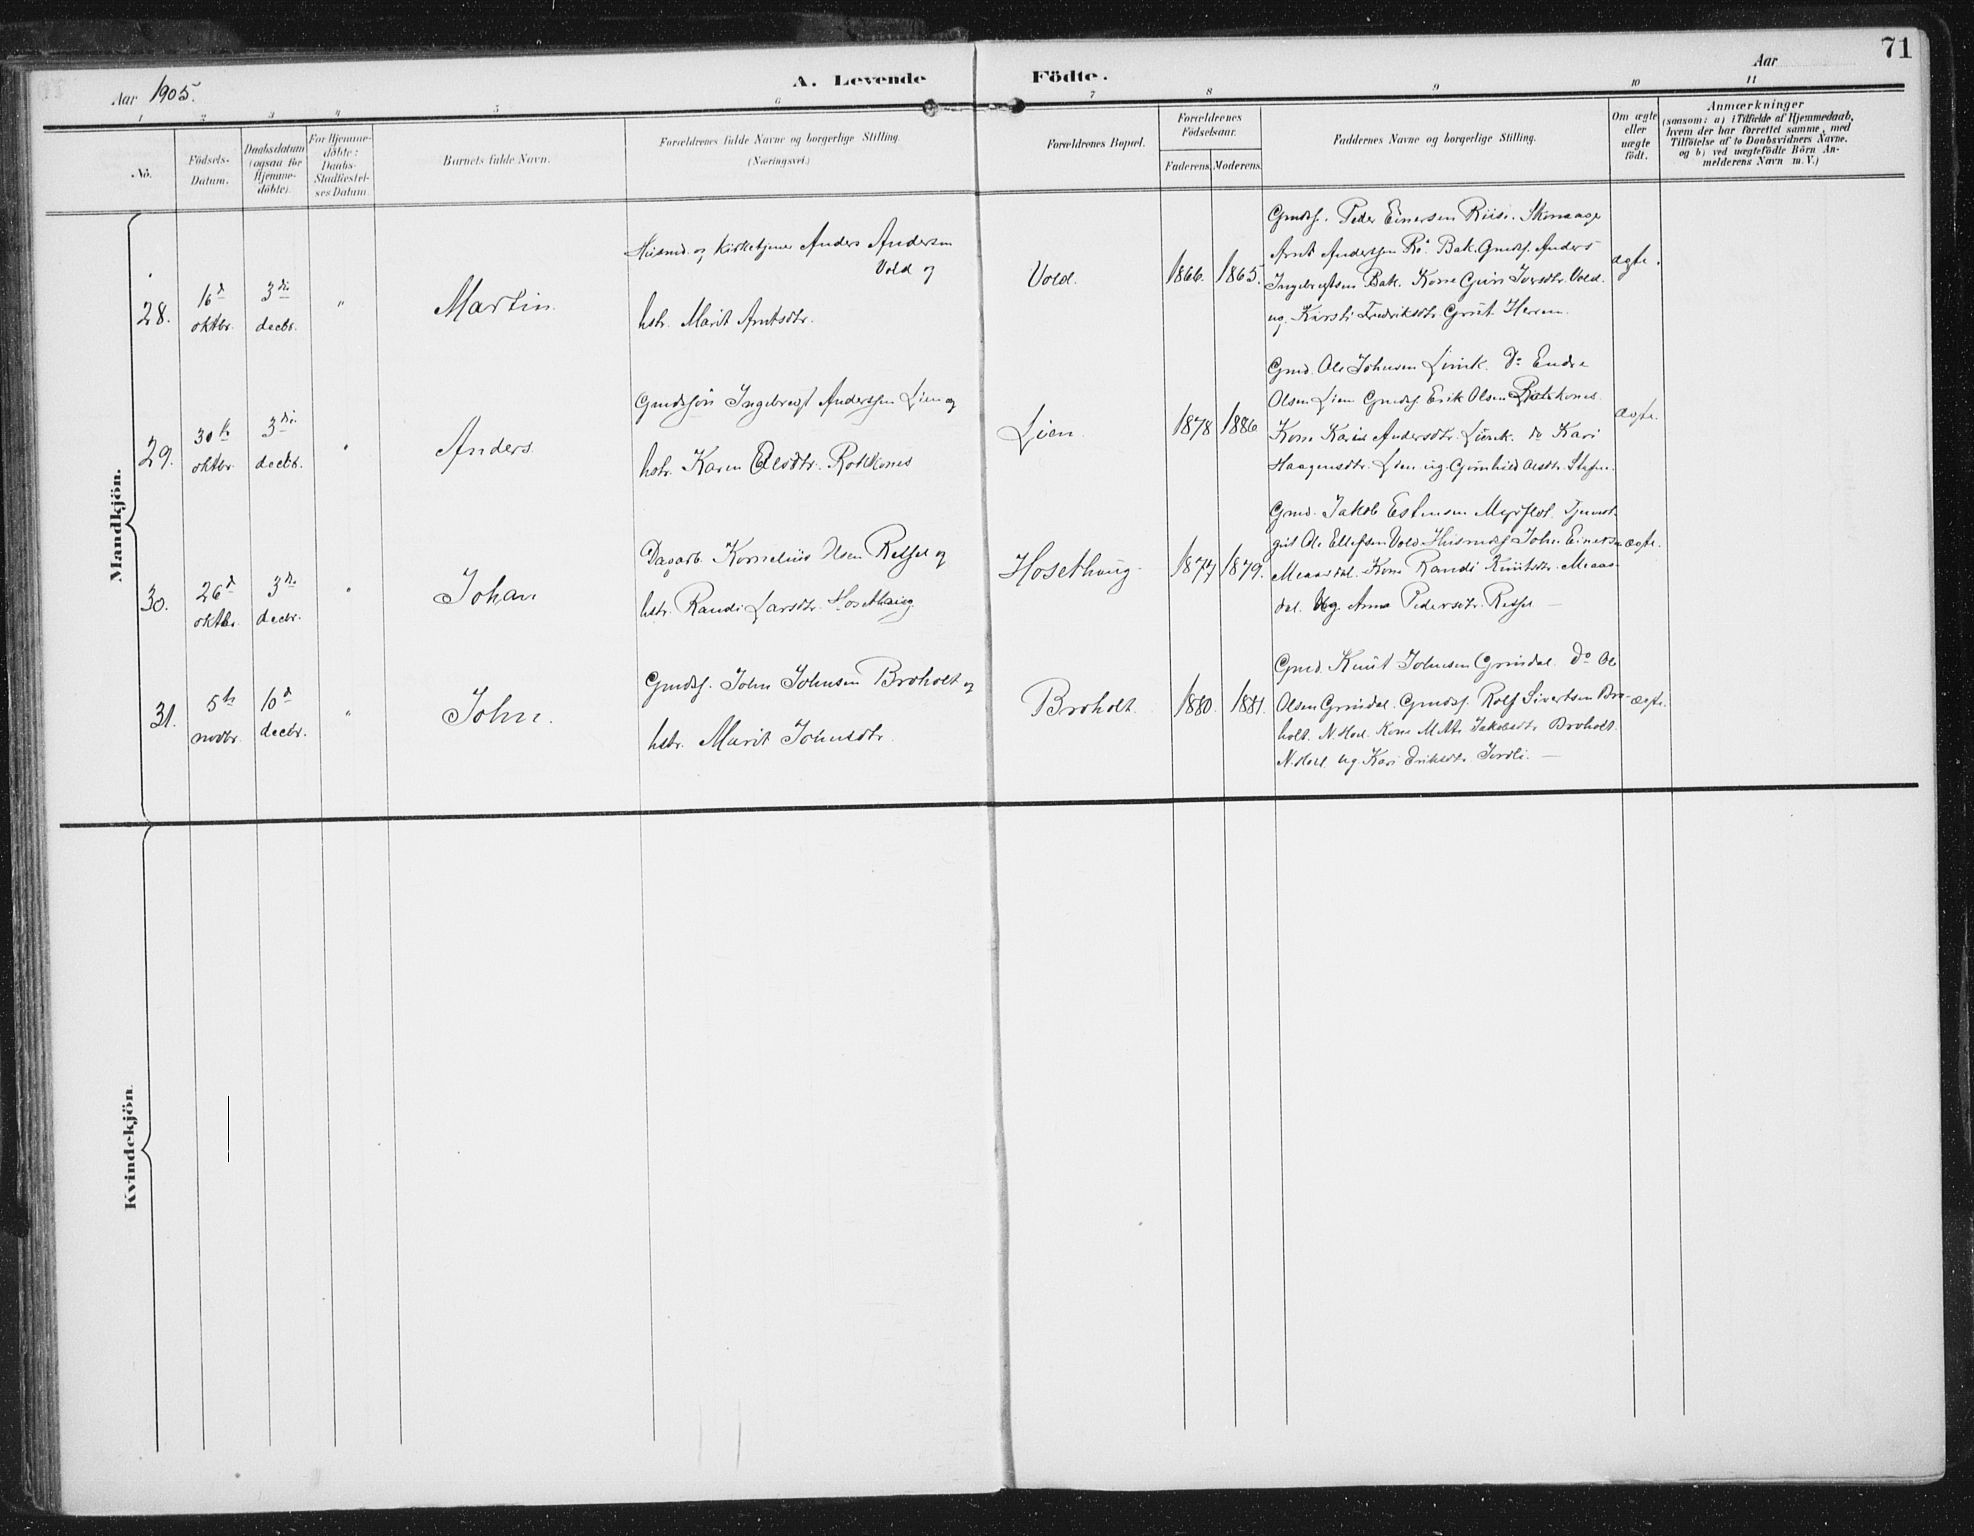 71
A. Levende Födte.
Aar 1905.
Aar
1 2 3 4 5 6 7 8 9 10 11
No.
Födsels-
Datum.
Daabsdatum
(ogsaa for
Hjemme-
döbte).
For Hjemme-
döbte:
Daabs-
Stadfæstel-
ses Datum
Barnets fulde Navn.
Forældrenes fulde Navne og borgerlige Stilling.
(Næringsvei.)
Forældrenes Bopæl.
Forældrenes
Födselsaar.
Faderens. Moderens.
Faddernes Navne og borgerlige Stilling.
Om ægte
eller
uægte
født.
Anmærkninger
(saasom: a) i Tilfælde af Hjemmedaab,
hvem der har forrettet samme, med
Tilföielse af to Daabsvidners Navne.
og b) ved uægtefödte Börn An-
melderens Navn m. V.)
Mandkjön.
28.
16d
oktbr.
3die
decbr.
"
Martin.
Husmd. og Kirketjener Anders Andersen
Vold og
hstr. Marit Arntsdtr.
Vold.
1866. 1865.
Gmdsf. Peder Einersen Riise. Skomager
Arnt Anderssen Rö Bak. Gmdsf. Anders
Ingebrigtsen Bak. Kone Guri Iversdtr. Vold.
ug. Kirsti Fredriksdtr. Grut Herrem.
ægte.
29.
30te
oktbr.
3die
decbr.
"
Anders.
Gmdssön Ingebrigt Anderssen Lien og
hstr. Karen Olsdtr. Rokkones
Lien.
1878 1886
Gmd. Ole Johnsen Do Endre
Olsen Lien Gmdsf. Erik Olsen Rokkones.
Kone Karen Andersdtr. do Kari
Haagensdtr. Lien ug. Gunhild Olsdtr.
ægte.
30.
26d
oktbr.
3die
decbr.
"
Johan
Dagarb. Kornelius Olsen Retsel og
hstr. Randi Larsdtr. Hosethaug.
Hosethaug.
1874 1879.
Gmd. Jakob Estensen Tjenest-
gut Ole Ellefsen Vold Husmdsf. John Einersen
Meaasdal. Kone Randi Knutsdtr. Meaas-
dal. Ug. Anna Pedersdtr. Retsel —
ægte.
31.
5te
novbr.
10d
decbr.
"
John.
Gmdsf. John Johnsen Broholt og
hstr. Marit Johnsdtr.
Broholt.
1880. 1881.
Gmd. Knut Johnsen Grindal. Do Ole
Olsen Grindal. Gmdsf. Rolf Sivertsen Bro-
holt. N. Hoel. Kone Mette Jakobsdtr Broholt.
N. Hoel. ug. Kari Eriksdtr. Jordli. —
ægte.
Kvindekjön.